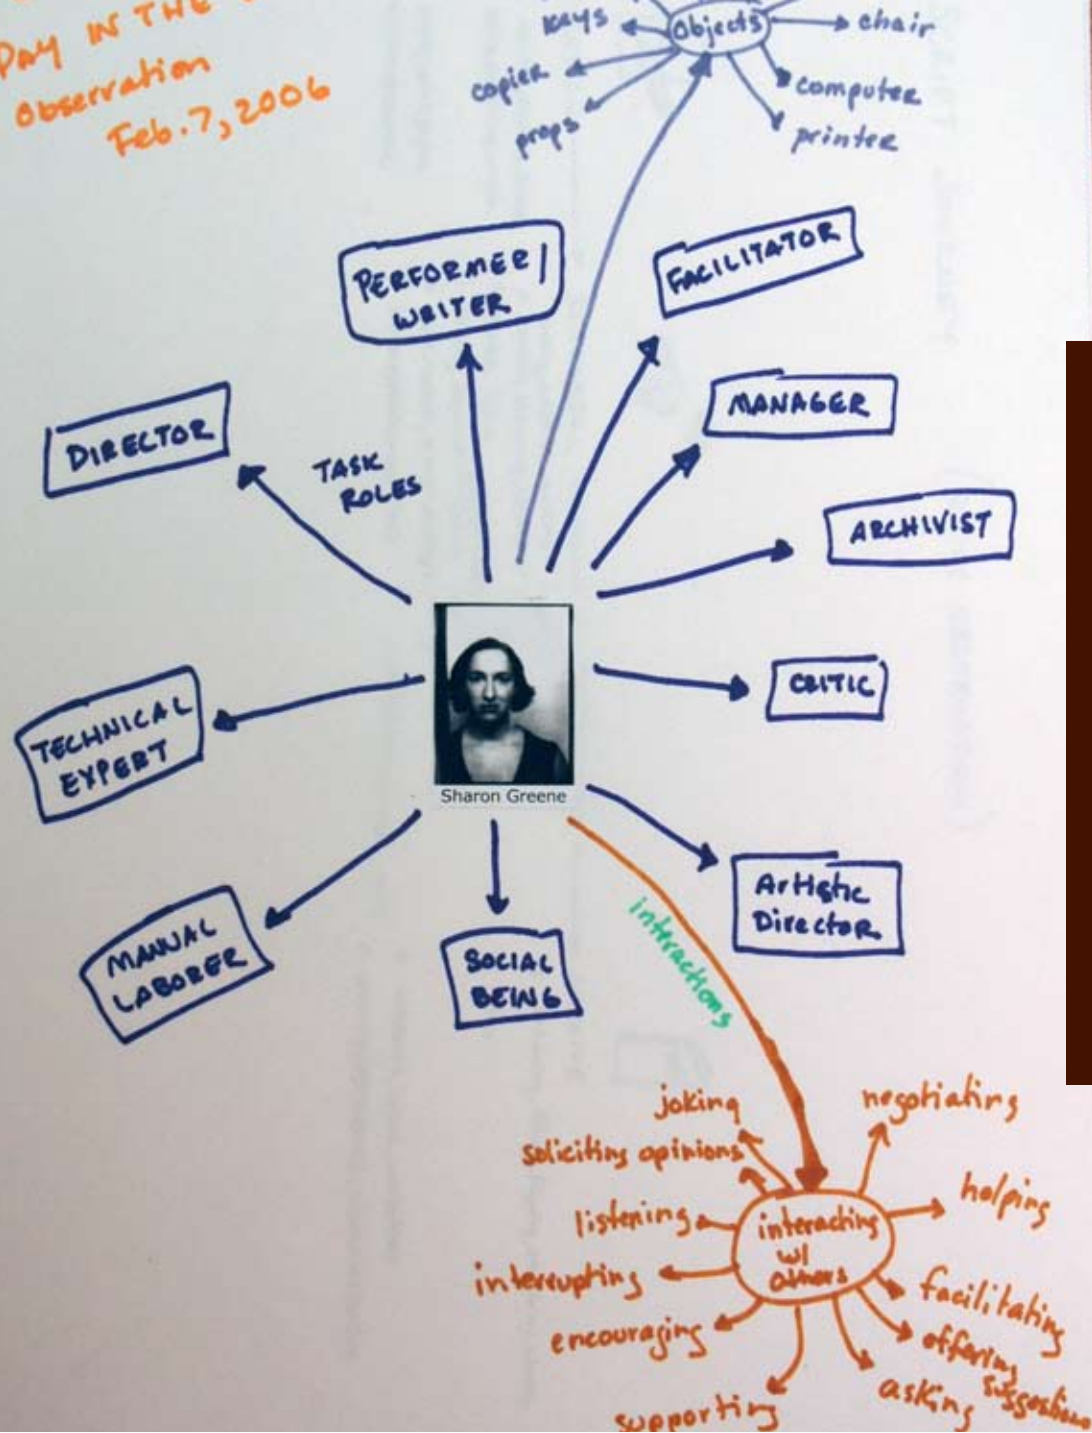 DAY IN THE
Observation
Feb. 7, 2006
keys
Objects
chair
copier
computer
props
printer
PERFORMER/
WRITER
FACILITATOR
MANAGER
DIRECTOR
TASK
ROLES
ARCHIVIST
TECHNICAL
EXPERT
CRITIC
Sharon Greene
Artistic
Director
MANUAL
LABORER
SOCIAL
BEING
interactions
joking
negotiating
soliciting opinions
helping
listening
interacting
w/
others
interrupting
facilitating
encouraging
offering
suggestions
asking
supporting